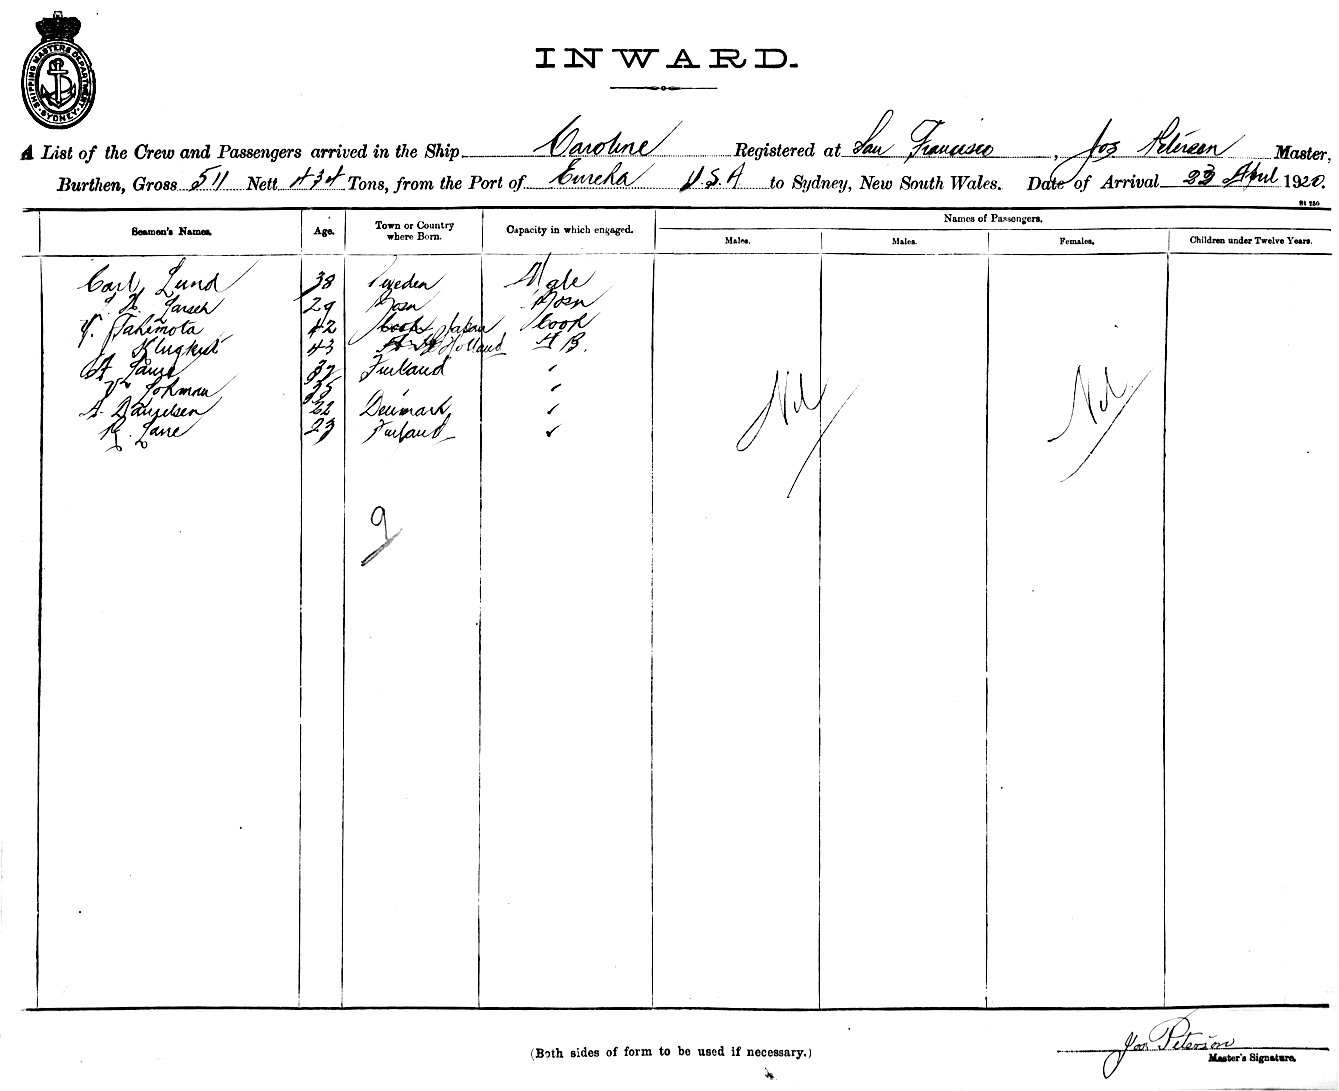 SHIPPING MASTERS DEPARTMENT SYDNEY
INWARD.
A List of the Crew and Passengers arrived in the Ship Caroline Registered at San Francisco, Jos Petersen Master,
Burthen, Gross 511 Nett 434 Tons, from the Port of Eureka U.S.A to Sydney, New South Wales. Date of Arrival 23 April 1920.
Names of Passengers.
Seamen's Names. Age. Town or Country where Born. Capacity in which engaged. Males. Males. Females. Children under Twelve Years.
Carl Lund 38 Sweden Mate
29 Bosn Bosn
Y. Tahimota 42 Cook Japan Cook
Klugkist 43 Holland A B.
37 Finland "
Lohman 35 "
A. Danielsen 22 Denmark "
K. Lane 23 Finland "
Nil Nil
9
(Both sides of form to be used if necessary.)
Jos Peterson
Master's Signature.